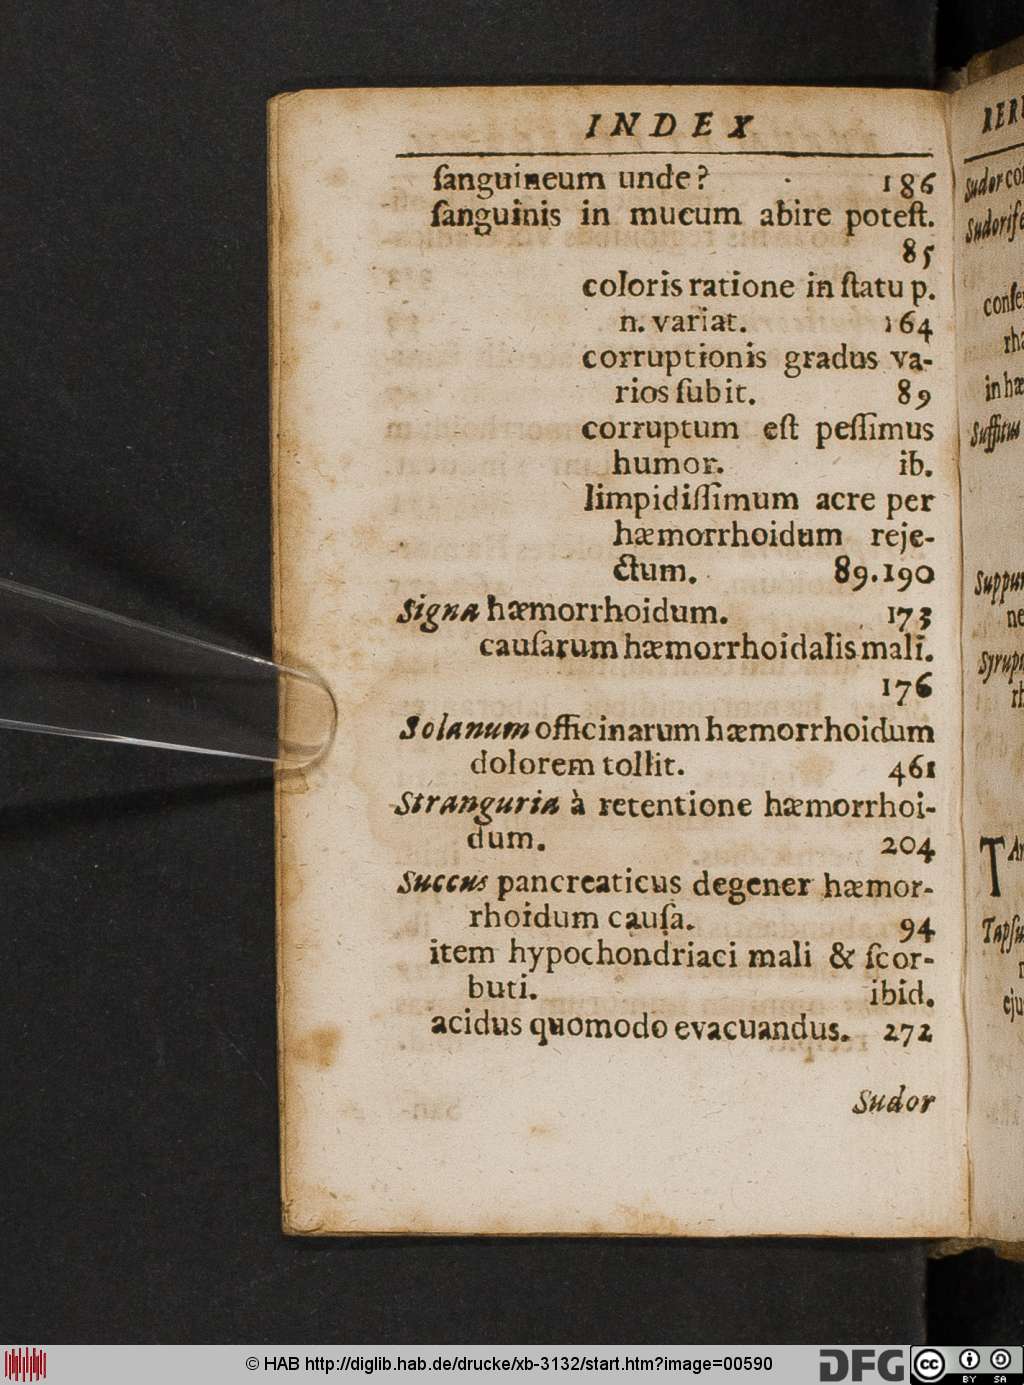 INDEX
ſanguineum unde? 186
ſanguinis in mucum abire poteſt.
85
coloris ratione in ſtatu p.
n. variat. 164
corruptionis gradus va-
rios ſubit. 89
corruptum eſt peſſimus
humor. ib.
limpidiſſimum acre per
hæmorrhoidum reje-
ctum. 89.190
Signa hæmorrhoidum. 173
cauſarum hæmorrhoidalis mali.
176
Solanum officinarum hæmorrhoidum
dolorem tollit. 461
Stranguria à retentione hæmorrhoi-
dum. 204
Succus pancreaticus degener hæmor-
rhoidum cauſa. 94
item hypochondriaci mali & ſcor-
buti. ibid.
acidus quomodo evacuandus. 272
Sudor
Sudor
conſe
rha
in hæ
Suffitus
ne
rh
© HAB http://diglib.hab.de/drucke/xb-3132/start.htm?image=00590
DFG
cc
BY SA